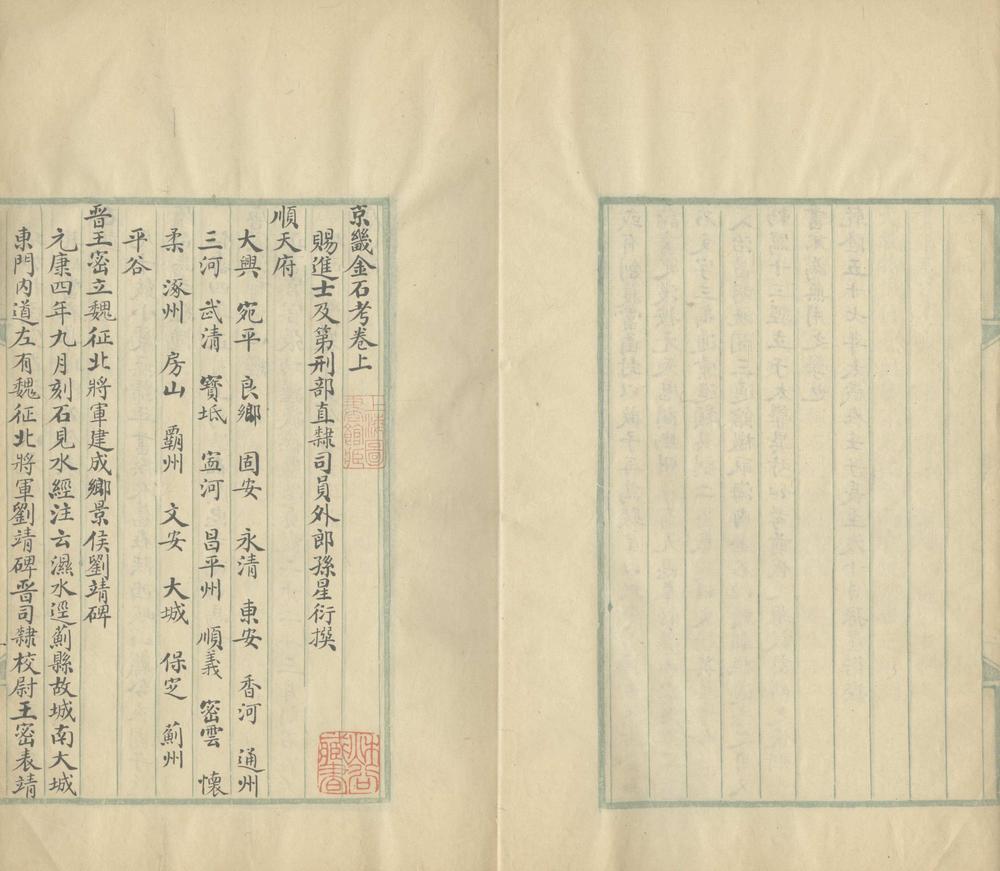 京畿金石考卷上
賜進士及第刑部直隸司員外郎孫星衍撰
順天府
大興 宛平 良鄉 固安 永清 東安 香河 通州
三河 武清 寶坻 寍河 昌平州 順義 密雲 懷
柔 涿州 房山 霸州 文安 大城 保㝎 薊州
平谷
晉王密立魏征北將軍建成鄉景侯劉靖碑
元康四年九月刻石見水經注云濕水逕薊縣故城南大城
東門內道左有魏征北將軍劉靖碑晉司隸校尉王密表靖
上海圖
書館藏
藏書